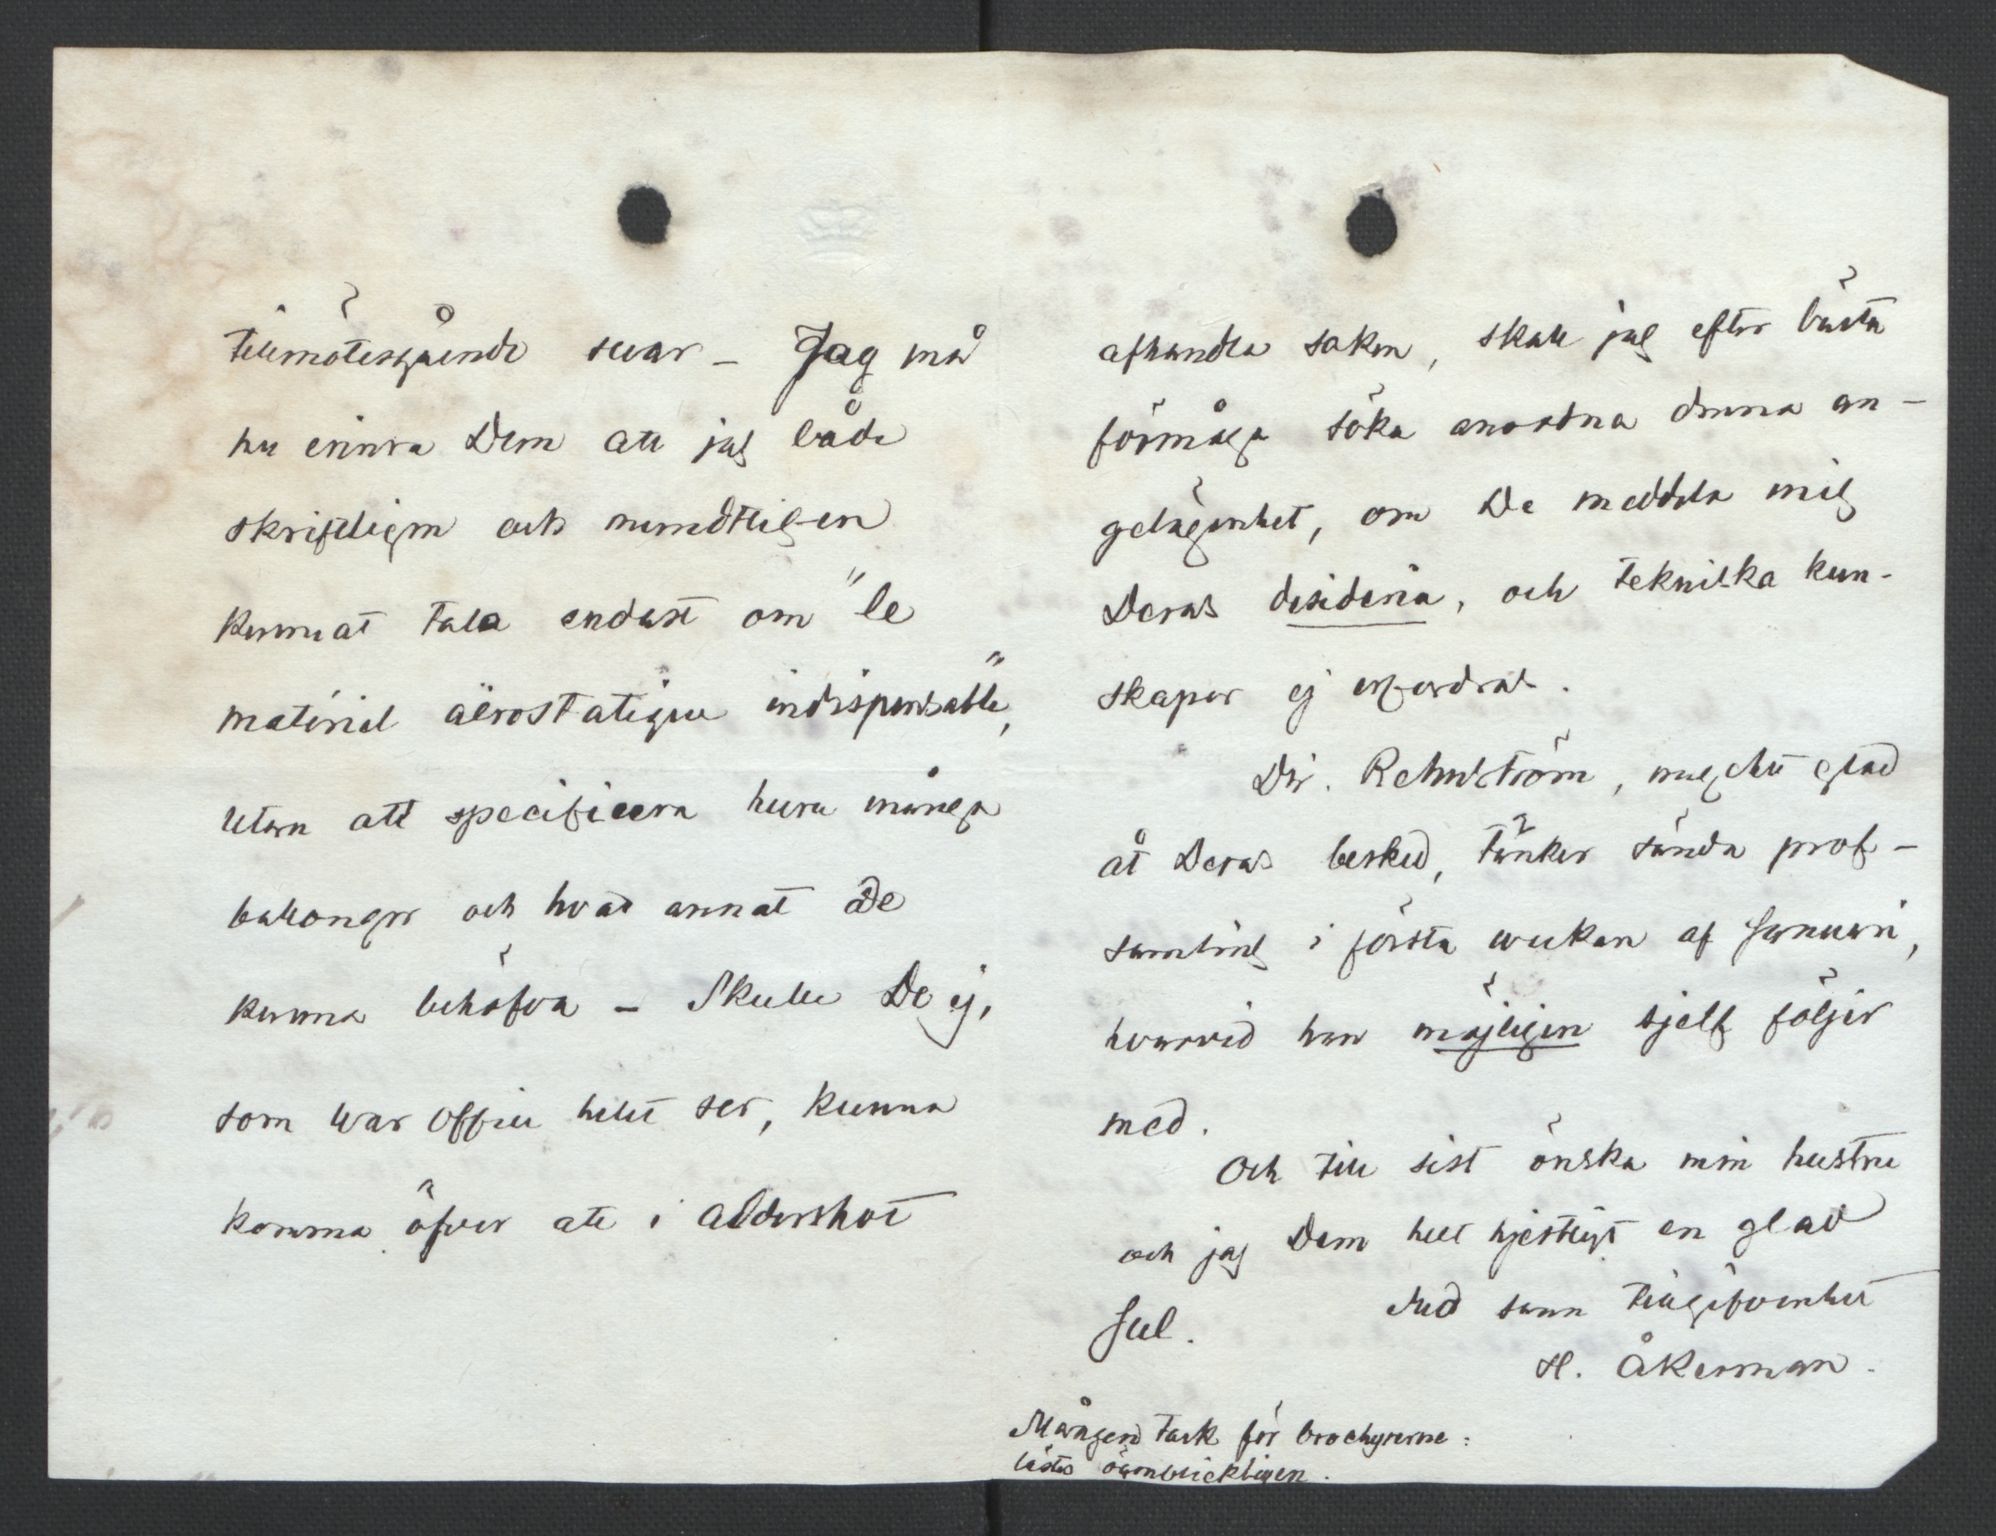 tillmötesgående svar – Jag må
nu erinra Dem att jag både
skriftligen och mundtligen
kunnat tala endast om "le
matériel aërostatique indispensable",
utan att specificera huru många
ballonger och hvad annat De
kunna behöfva – Skulle De ej,
som War Office helst ser, kunna
komma öfver att i Aldershot
afhandla saken, skall jag efter bästa
förmåga söka anordna denna an-
gelägenhet, om De meddela mig
Deras desideria, och tekniska kun-
skaper ej erfordras.
Dir. Rehnström, mycket glad
åt Deras besked, tänker sända prof-
samling i första veckan af Januari,
hvarvid han möjligen sjelf följer
med.
Och till sist önska min hustru
och jag Dem helt hjertligt en glad
Jul.
Med sann tillgifvenhet
H. Åkerman.
Mången tack för brochyrerne:
lästes ögonblickligen.